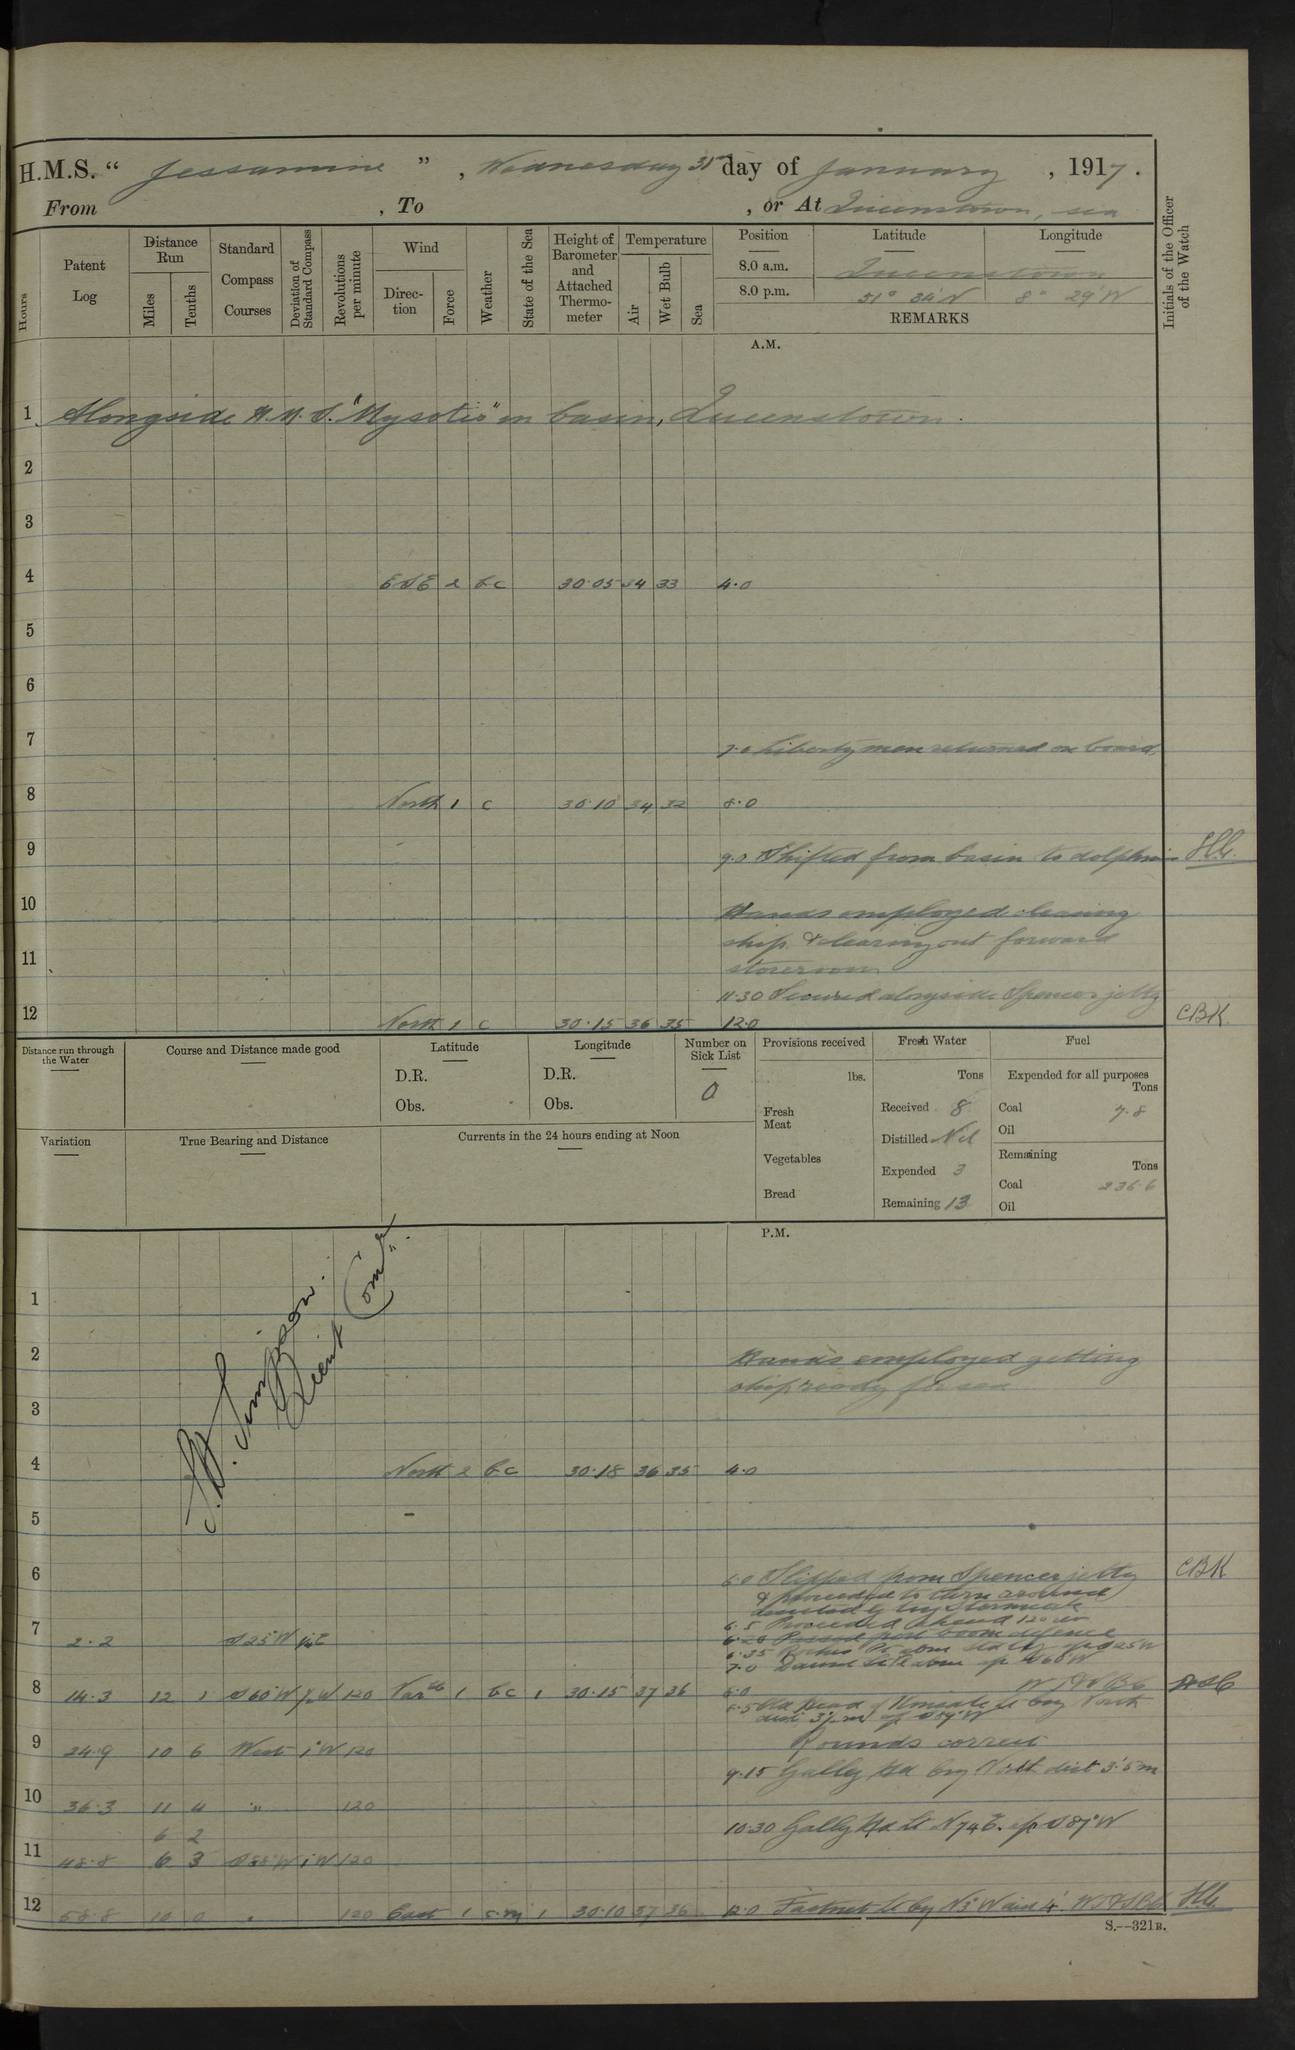 H.M.S. “ Jessamine ” , Wednesday 31st day of January , 1917 .
From , To , or At Queenstown, sea
Hours
Patent Log
Distance Run
Miles
Tenths
Standard Compass Courses
Deviation of Standard Compass
Revolutions per minute
Wind
Direc-tion
Force
Weather
State of the Sea
Height of Barometer and Attached Thermo-meter
Temperature
Air
Wet Bulb
Sea
Position Latitude Longitude
8.0 a.m. Queenstown
8.0 p.m. 51° 34' N 8° 29' W
REMARKS
Initials of the Officer of the Watch
A.M.
1 Alongside H.M.S. "Mysotis" in basin, Queenstown.
2
3
4 ESE 2 bc 30.05 34 33 4.0
5
6
7 7.0 Liberty men returned on board.
8 North 1 c 30.10 34 32 8.0
9 9.0 Shifted from basin to dolphin
10 Hands employed cleaning
ship & clearing out forward
11 storeroom
11.30 Secured alongside Spencer jetty
12 North 1 c 30.15 36 35 12.0 CBK
Distance run through the Water
Course and Distance made good
Latitude
D.R.
Obs.
Longitude
D.R.
Obs.
Number on Sick List
0
Provisions received
lbs.
Fresh Meat
Vegetables
Bread
Fresh Water
Tons
Received 8
Distilled Nil
Expended 3
Remaining 13
Fuel
Expended for all purposes
Tons
Coal 7.8
Oil
Remaining
Tons
Coal 236.6
Oil
Variation
True Bearing and Distance
Currents in the 24 hours ending at Noon
P.M.
Simpson.
Lieut Comr
1
2 Hands employed getting
ship ready for sea
3
4 North 2 bc 30.18 36 35 4.0
5
6 6.0 Slipped from Spencer jetty CBK
& proceeded to turn round
assisted by tug Stormcock
6.5 Proceeded ahead 120 rev
7 2.2 S25°W 6.20 Passed port boom defence
6.35 S25W
7.0 Daunt Lt S60W
8 14.3 12 1 S60°W 120 Varble 1 bc 1 30.15 37 36 8.0
8.5 Old Head of Kinsale Lt brg North
dist S89°W
9 24.9 10 6 West 1°W 120 Rounds correct
9.15 Galley Hd brg North dist 3'.5m
10 36.3 11 4 " 120
6 2 10.30 Galley Hd Lt N74E. S87°W
11 48.8 6 3 S88°W 1°W 120
12 58.8 10 0 " 120 East 1 1 30.10 37 36 12.0 Fastnet Lt brg N3°W dist 4'.
S.—321B.